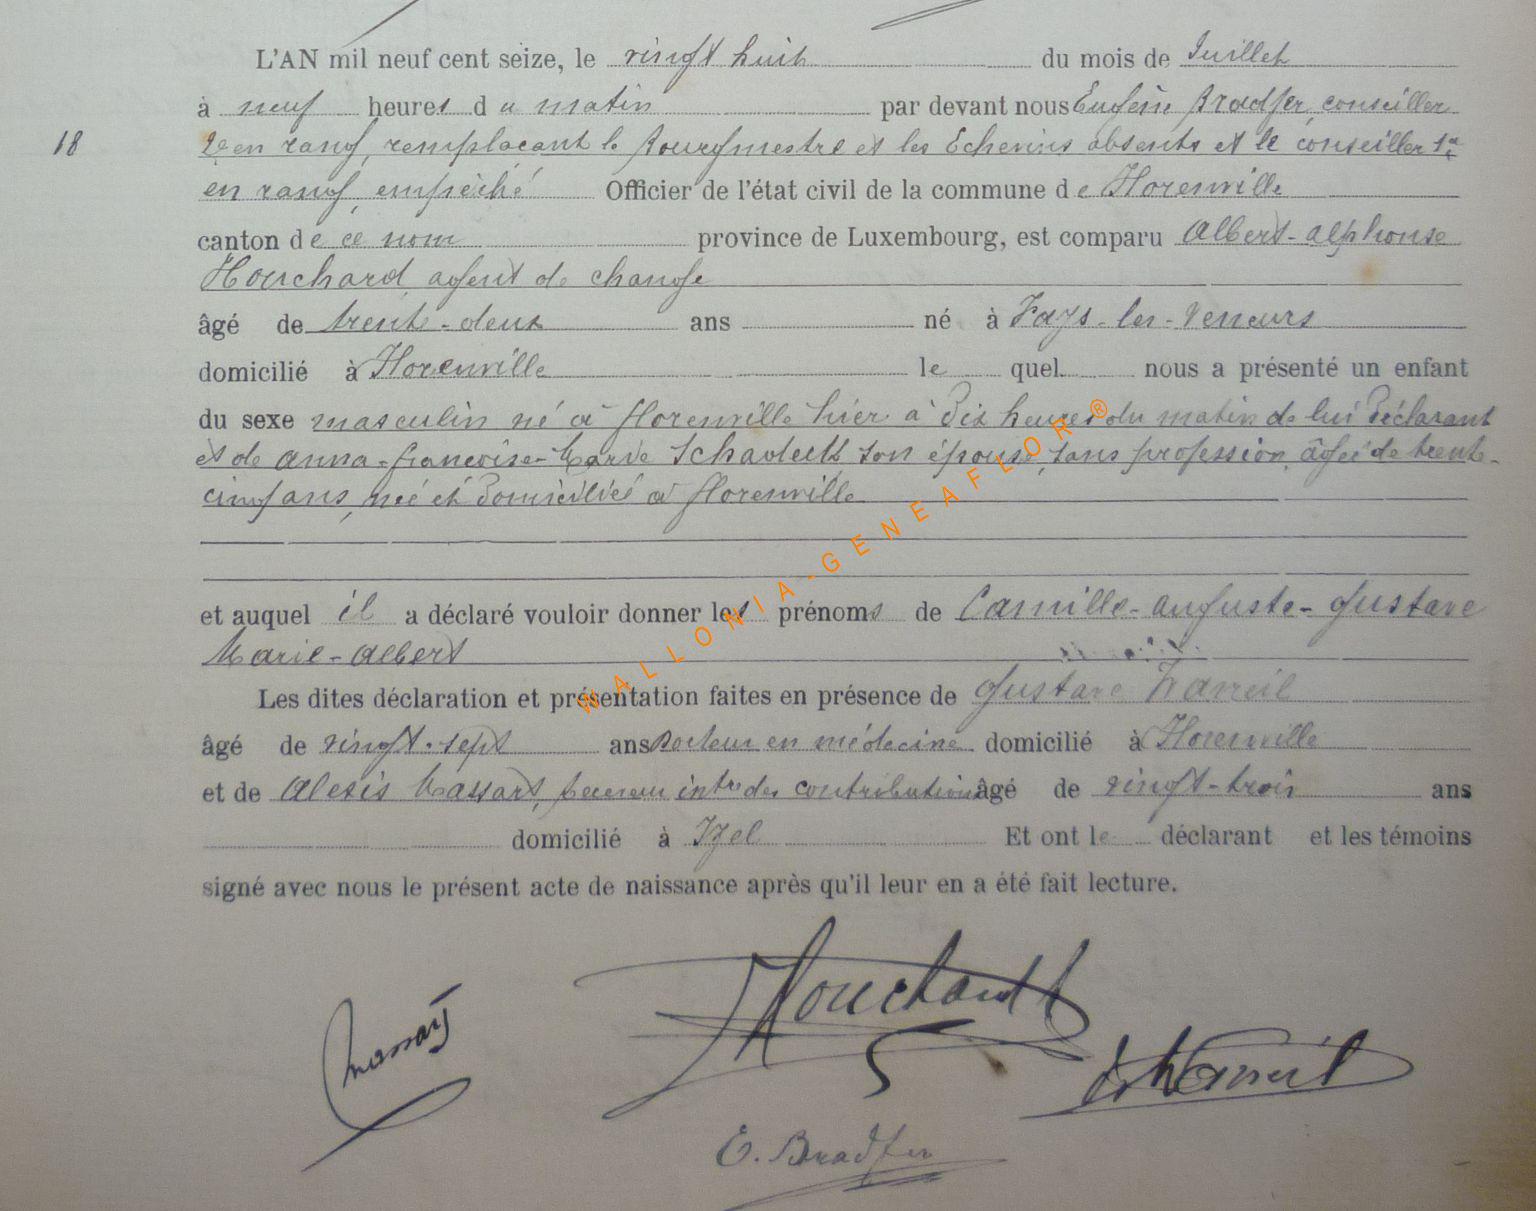 L'AN mil neuf cent seize, le vingt huit du mois de Juillet
à neuf heures du matin par devant nous Eugène Bradfer, conseiller
18
2e en rang, remplaçant le Bourgmestre et les Echevins absents et le conseiller 1er
en rang, empêché Officier de l'état civil de la commune de Florenville
canton de ce nom province de Luxembourg, est comparu Albert-Alphonse
Houchard, agent de change
âgé de trente-deux ans né à Fays-les-Veneurs
domicilié à Florenville lequel nous a présenté un enfant
du sexe masculin né à Florenville hier à dix heures du matin de lui déclarant
et de Anna-Françoise-Marie Schadeck son épouse, sans profession, âgée de trente-
cinq ans, née et domiciliée à Florenville
et auquel il a déclaré vouloir donner les prénoms de Camille-Auguste-Gustave
Marie-Albert
Les dites déclaration et présentation faites en présence de Gustave
âgé de vingt-sept ans Docteur en médecine domicilié à Florenville
et de Alexis Massart, receveur intre des contributions âgé de vingt-trois ans
domicilié à Izel Et ont le déclarant et les témoins
signé avec nous le présent acte de naissance après qu'il leur en a été fait lecture.
Houchard
Massart
E. Bradfer
WALLONIA-GENEAFLOR®